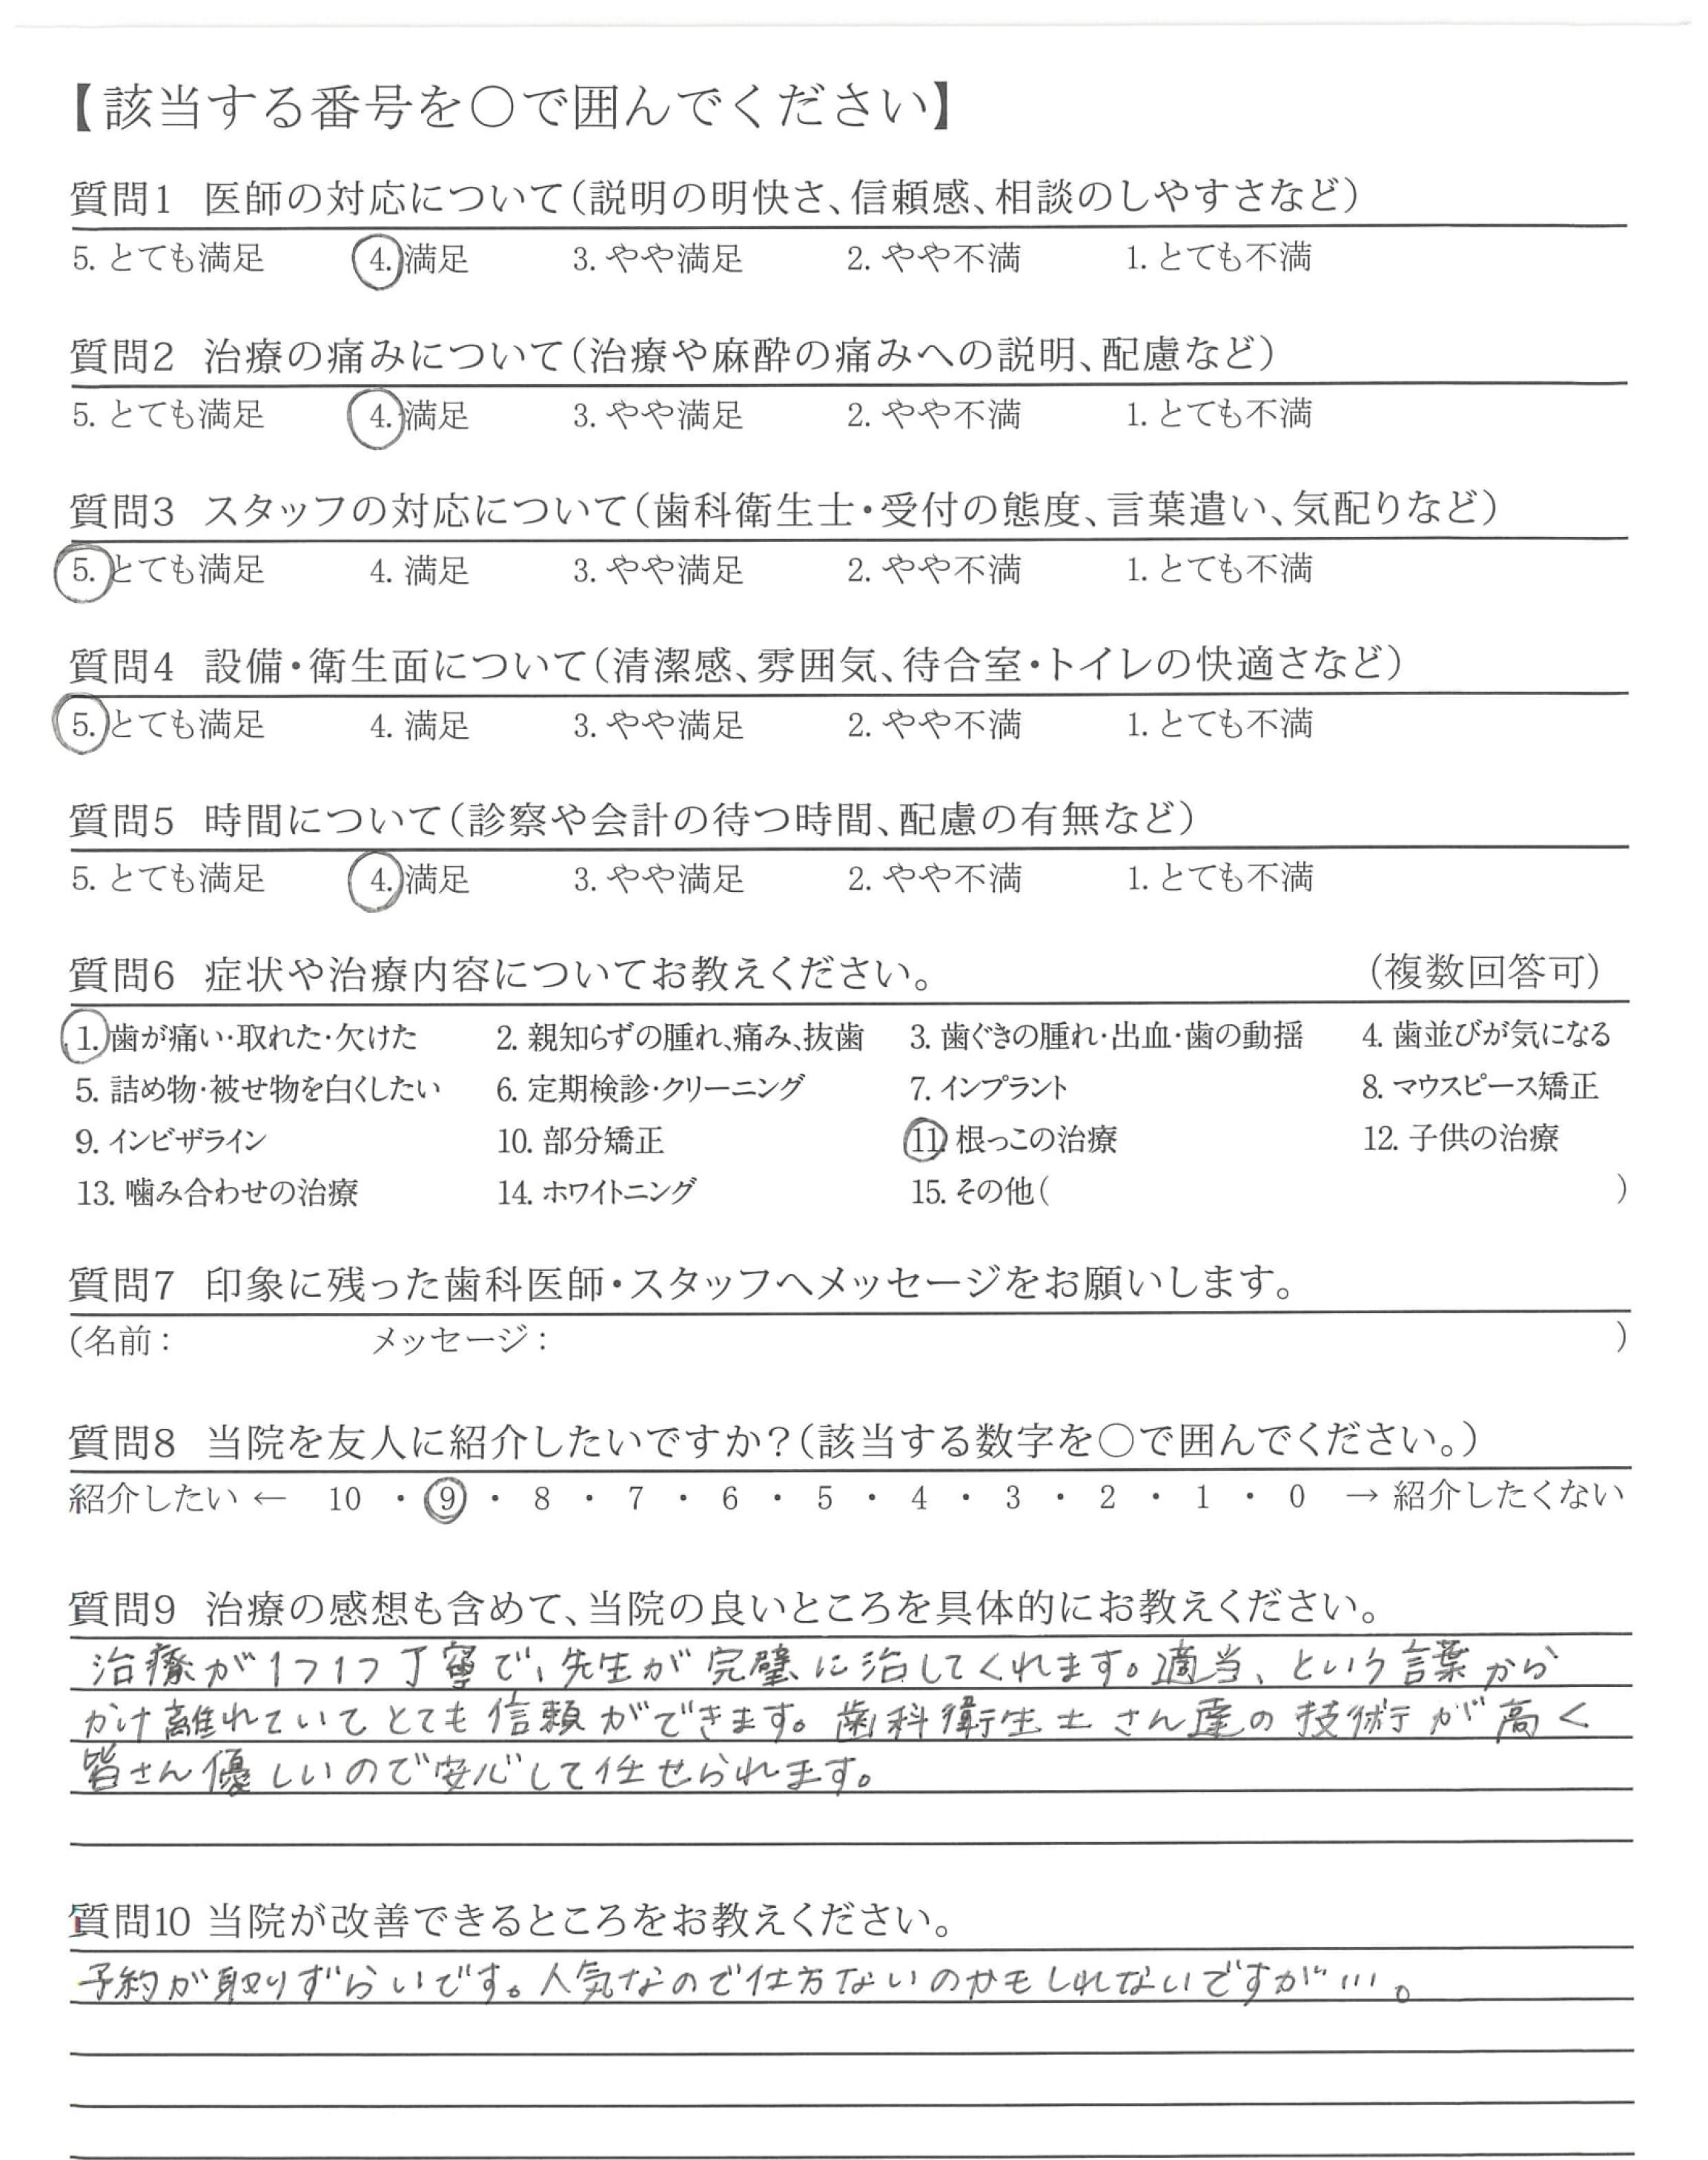 【該当する番号を○で囲んでください】
質問1 医師の対応について(説明の明快さ、信頼感、相談のしやすさなど)
5. とても満足 4. 満足 3. やや満足 2. やや不満 1. とても不満
質問2 治療の痛みについて(治療や麻酔の痛みへの説明、配慮など)
5. とても満足 4. 満足 3. やや満足 2. やや不満 1. とても不満
質問3 スタッフの対応について(歯科衛生士・受付の態度、言葉遣い、気配りなど)
5. とても満足 4. 満足 3. やや満足 2. やや不満 1. とても不満
質問4 設備・衛生面について(清潔感、雰囲気、待合室・トイレの快適さなど)
5. とても満足 4. 満足 3. やや満足 2. やや不満 1. とても不満
質問5 時間について(診察や会計の待つ時間、配慮の有無など)
5. とても満足 4. 満足 3. やや満足 2. やや不満 1. とても不満
質問6 症状や治療内容についてお教えください。 (複数回答可)
1. 歯が痛い・取れた・欠けた 2. 親知らずの腫れ、痛み、抜歯 3. 歯ぐきの腫れ・出血・歯の動揺 4. 歯並びが気になる
5. 詰め物・被せ物を白くしたい 6. 定期検診・クリーニング 7. インプラント 8. マウスピース矯正
9. インビザライン 10. 部分矯正 11. 根っこの治療 12. 子供の治療
13. 噛み合わせの治療 14. ホワイトニング 15. その他( )
質問7 印象に残った歯科医師・スタッフへメッセージをお願いします。
(名前: メッセージ: )
質問8 当院を友人に紹介したいですか?(該当する数字を○で囲んでください。)
紹介したい ← 10 ・ 9 ・ 8 ・ 7 ・ 6 ・ 5 ・ 4 ・ 3 ・ 2 ・ 1 ・ 0 → 紹介したくない
質問9 治療の感想も含めて、当院の良いところを具体的にお教えください。
治療が1つ1つ丁寧で、先生が完璧に治してくれます。適当、という言葉から
かけ離れていてとても信頼ができます。歯科衛生士さん達の技術が高く
皆さん優しいので安心して任せられます。
質問10 当院が改善できるところをお教えください。
予約が取りずらいです。人気なので仕方ないのかもしれないですが…。